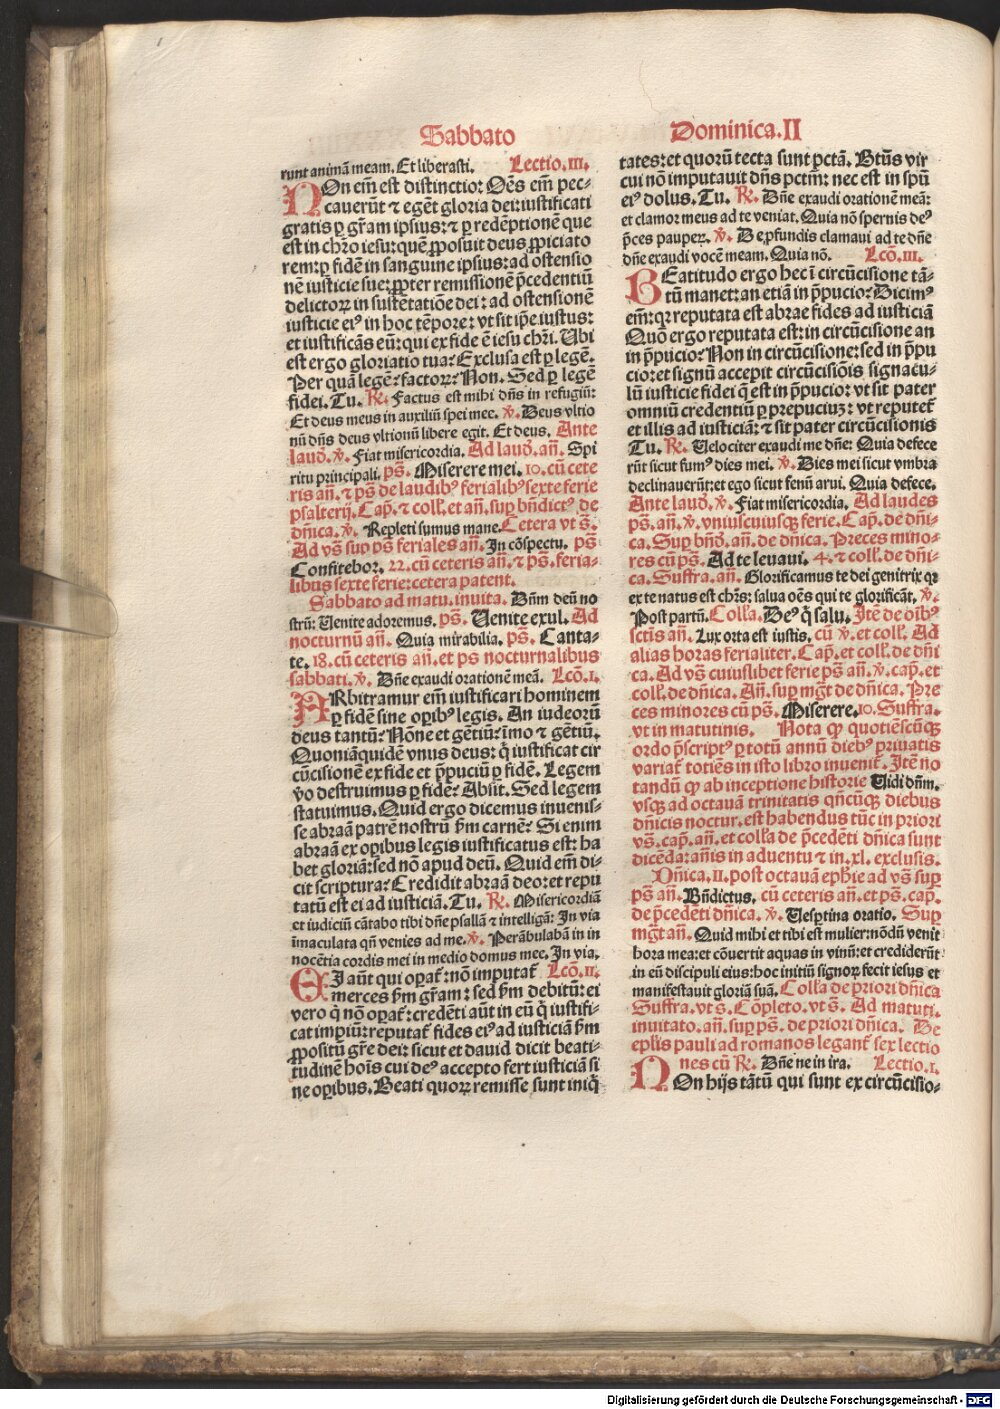 Sabbato
runt animā meam. Et liberasti. Lectio.iii.
NOn em̄ est distinctio: Oēs em̄ pec-
cauerūt ⁊ egēt gloria dei: iustificati
gratis ꝑ gr̄am ipsius: ⁊ ꝑ redēptionē que
est in chr̄o iesu: quē ꝓposuit deus ꝓpiciato
rem: ꝑ fidē in sanguine ipsius: ad ostensio
nē iusticie sue: ꝓpter remissionē p̄cedentiū
delictoꝝ in sustētatiōe dei: ad ostensionē
iusticie eiꝰ in hoc tēpore: vt sit ip̄e iustus:
et iustificās eū: qui ex fide ē iesu chr̄i. Ubi
est ergo gloriatio tua? Exclusa est ꝑ legē.
Per quā legē? factoꝝ? Non. Sed ꝑ legē
fidei. Tu. ℟. Factus est mihi dn̄s in refugiū:
Et deus meus in auxiliū spei mee. ℣. Deus vltio
nū dn̄s deus vltionū libere egit. Et deus. Ante
laud̄. ℣. Fiat misericordia. Ad laud̄. an̄. Spi
ritu principali. ps̄. Miserere mei. 10. cū cete
ris an̄. ⁊ ps̄ de laudibꝰ ferialibꝰ sexte ferie
psalterij. Cap̄. ⁊ coll̄. et an̄. suꝑ bn̄dictꝰ de
dn̄ica. ℣. Repleti sumus mane. Cetera vt s̄.
Ad vs̄ suꝑ ps̄ feriales an̄. In cōspectu. ps̄
Confitebor. 22. cū ceteris an̄. ⁊ ps̄. feria-
libus sexte ferie: cetera patent.
Sabbato ad matu. inuita. Dn̄m deū no
strū: Uenite adoremus. ps̄. Uenite exul. Ad
nocturnū an̄. Quia mirabilia. ps̄. Canta-
te. 18. cū ceteris an̄. et ps nocturnalibus
sabbati. ℣. Dn̄e exaudi orationē meā. Lcō.i.
ARbitramur em̄ iustificari hominem
ꝑ fidē sine oꝑibꝰ legis. An iudeorū
deus tantū? Nōne et gētiū? imo ⁊ gētiū.
Quoniāquidē vnus deus: q̄ iustificat cir
cūcisionē ex fide et p̄puciū ꝑ fidē. Legem
v̄o destruimus ꝑ fidē? Absit. Sed legem
statuimus. Quid ergo dicemus inuenis-
se abraā patrē nostrū ẜm carnē? Si enim
abraā ex oꝑibus legis iustificatus est: ha
bet gloriā: sed nō apud deū. Quid em̄ di-
cit scriptura? Credidit abraā deo: et repu
tatū est ei ad iusticiā. Tu. ℟. Misericordiā
et iudiciū cātabo tibi dn̄e psallā ⁊ intelligā: In via
īmaculata qn̄ venies ad me. ℣. Perābulabā in in
nocētia cordis mei in medio domus mee. In via.
EI aūt qui oꝑat̄: nō imputat̄ Lcō.ii.
merces ẜm gr̄am: sed ẜm debitū: ei
vero q̄ nō oꝑat̄: credēti aūt in eū q̄ iustifi-
cat impiū: reputat̄ fides eiꝰ ad iusticiā ẜm
ꝓpositū gr̄e dei: sicut et dauid dicit beati-
tudinē hoīs cui deꝰ accepto fert iusticiā si
ne oꝑibus. Beati quoꝝ remisse sunt iniq̄
Dominica.II
tates: et quorū tecta sunt pctā. Btūs vir
cui nō imputauit dn̄s pctm̄: nec est in sp̄u
eiꝰ dolus. Tu. ℟. Dn̄e exaudi orationē meā:
et clamor meus ad te veniat. Quia nō spernis deꝰ
p̄ces pauperꝝ. ℣. De ꝓfundis clamaui ad te dn̄e
dn̄e exaudi vocē meam. Quia nō. Lcō.iii.
BEatitudo ergo hec ī circūcisione tā-
tū manet: an etiā in p̄pucio? Dicimꝰ
em̄: qꝛ reputata est abrae fides ad iusticiā
Quō ergo reputata est: in circūcisione an
in p̄pucio? Non in circūcisione: sed in p̄pu
cio: et signū accepit circūcisiōis signacu-
lū iusticie fidei q̄ est in p̄pucio: vt sit pater
omniū credentiū ꝑ prepuciuꝫ: vt reputet̄
et illis ad iusticiā: ⁊ sit pater circūcisionis
Tu. ℟. Uelociter exaudi me dn̄e: Quia defece
rūt sicut fumꝰ dies mei. ℣. Dies mei sicut vmbra
declinauerūt: et ego sicut fenū arui. Quia defece.
Ante laud̄. ℣. Fiat misericordia. Ad laudes
ps̄. an̄. ℣. vniuscuiusqꝫ ferie. Cap̄. de dn̄i-
ca. Suꝑ bn̄d̄. an̄. de dn̄ica. Preces mino-
res cū ps̄. Ad te leuaui. 4. ⁊ coll̄. de dn̄i-
ca. Suffra. an̄. Glorificamus te dei genitrix qꝛ
ex te natus est chr̄s: salua oēs qui te glorificāt. ℣.
Post partū. Coll̄a. Deꝰ q̄ salu. Itē de oībꝰ
sctis an̄. Lux orta est iustis. cū ℣. et coll̄. Ad
alias horas ferialiter. Cap̄. et coll̄. de dn̄i
ca. Ad vs̄ cuiuslibet ferie ps̄ an̄. ℣. cap̄. et
coll̄. de dn̄ica. An̄. suꝑ mḡt de dn̄ica. Pre
ces minores cū ps̄. Miserere. 10. Suffra.
vt in matutinis. Nota ꝙ quotiēscūqꝫ
ordo p̄scriptꝰ ꝑ totū annū diebꝰ priuatis
variat̄ totiēs in isto libro inuenit̄. Itē no
tandū ꝙ ab inceptione historie Uidi dn̄m.
vsqꝫ ad octauā trinitatis qn̄cūqꝫ diebus
dn̄icis noctur. est habendus tūc in priori
vs̄. cap̄. an̄. et coll̄a de p̄cedēti dn̄ica sunt
dicēda: an̄is in aduentu ⁊ in .xl. exclusis.
Dn̄ica.II. post octauā eph̄ie ad vs̄ suꝑ
ps̄ an̄. Bn̄dictus. cū ceteris an̄. et ps̄. cap̄.
de p̄cedēti dn̄ica. ℣. Uesꝑtina oratio. Suꝑ
mḡt an̄. Quid mihi et tibi est mulier: nōdū venit
hora mea: et cōuertit aquas in vinū: et crediderūt
in eū discipuli eius: hoc initiū signoꝝ fecit iesus et
manifestauit gloriā suā. Coll̄a de priori dn̄ica
Suffra. vt s̄. Cōpleto. vt s̄. Ad matuti.
inuitato. an̄. suꝑ ps̄. de priori dn̄ica. De
epl̄is pauli ad romanos legant̄ sex lectio
nes cū ℟. Dn̄e ne in ira. Lectio.i.
NOn hijs tātū qui sunt ex circūcisio-
Digitalisierung gefördert durch die Deutsche Forschungsgemeinschaft - DFG